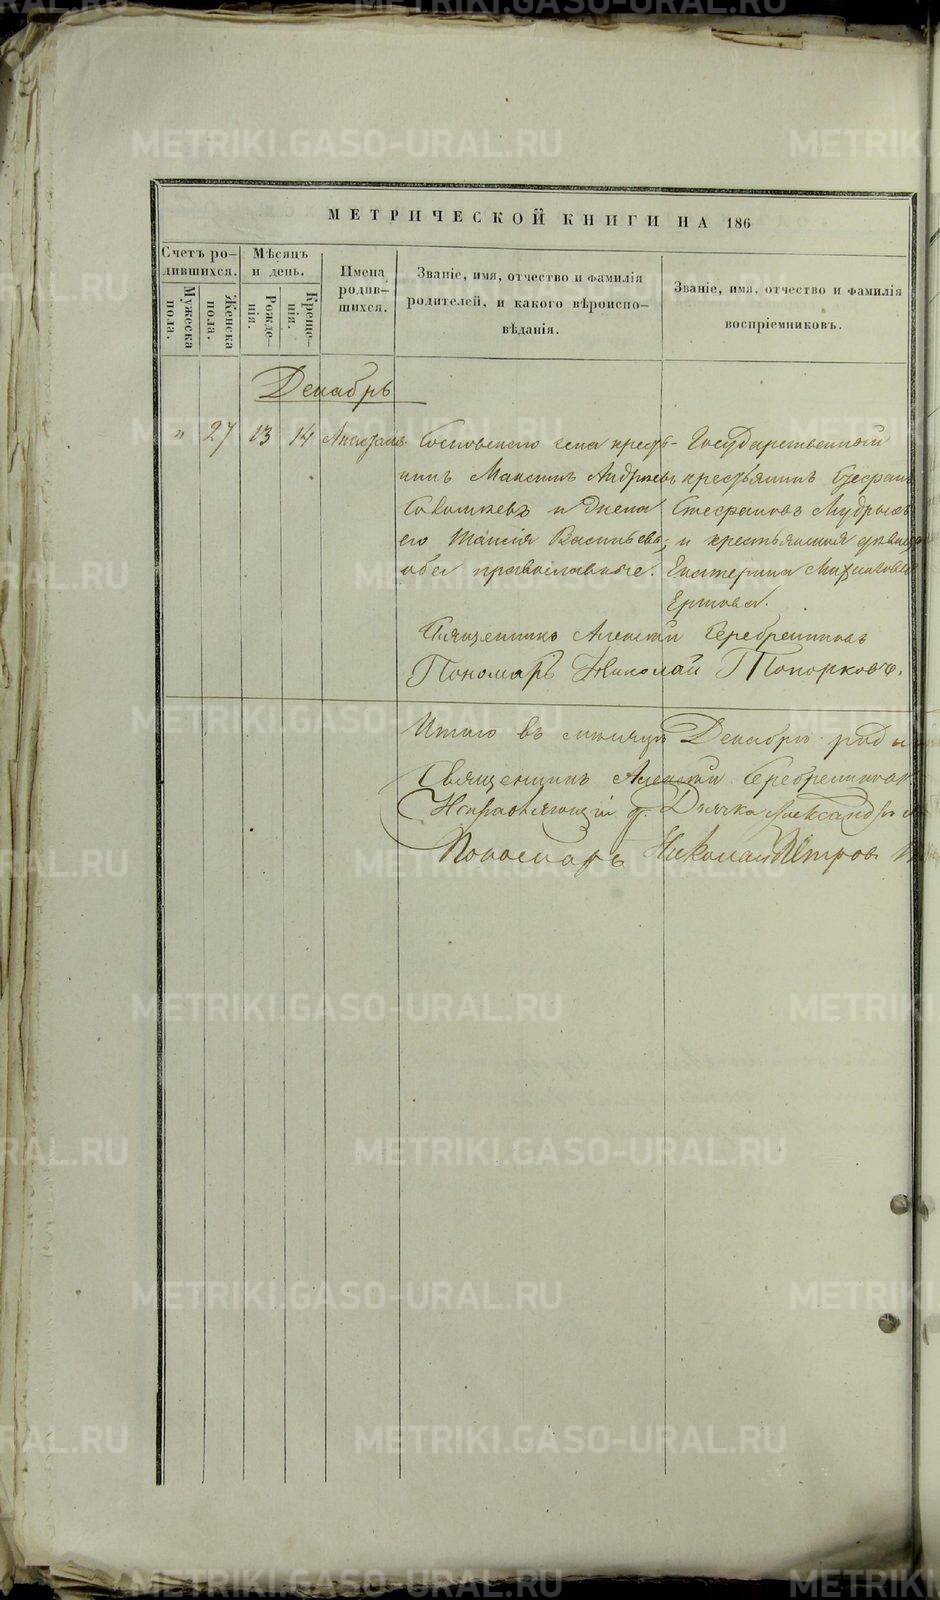 МЕТРИЧЕСКОЙ КНИГИ НА 186
Счетъ ро-
дившихся.
Мужеска
пола.
Женска
пола.
Мѣсяцъ
и день.
Рожде-
нія.
Креще-
нія.
Имена
родив-
шихся.
Званіе, имя, отчество и фамилія
родителей, и какого вѣроиспо-
вѣданія.
Званіе, имя, отчество и фамилія
воспріемниковъ.
Декабрь
" 27 13 14
села кресть-
нинъ Максимъ Андреевъ
и жена
его Таисія Васильева;
оба православные.
Государственный
крестьянинъ Стефанъ
Стефановъ Мудрыхъ
и крестьянская дѣвица
Екатерина
Ершова.
Священникъ Алексій Серебренниковъ
Пономарь Николай Топорковъ.
Итого въ мѣсяцѣ Декабрѣ род
Священникъ Алексій Серебренников
Исправляющій д. Дьячка Александръ
Пономарь Николай Петров
METRIKI.GASO-URAL.RU